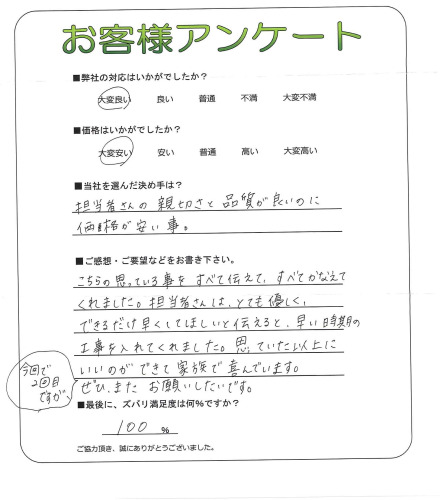 お客様アンケート
■弊社の対応はいかがでしたか?
大変良い 良い 普通 不満 大変不満
■価格はいかがでしたか?
大変安い 安い 普通 高い 大変高い
■当社を選んだ決め手は?
担当者さんの親切さと品質が良いのに
価格が安い事。
■ご感想・ご要望などをお書き下さい。
こちらの思っている事をすべて伝えて、すべてかなえて
くれました。担当者さんは、とても優しく、
できるだけ早くしてほしいと伝えると、早い時期の
工事を入れてくれました。思っていた以上に
いいのができて家族で喜んでいます。
今回で
2回目
ですが、
ぜひ、また お願いしたいです。
■最後に、ズバリ満足度は何%ですか?
100 %
ご協力頂き、誠にありがとうございました。